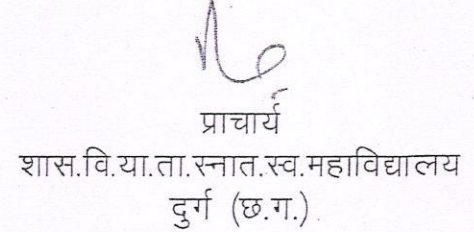 प्राचार्य
शास.वि.या.ता.स्नात.स्व.महाविद्यालय
दुर्ग (छ.ग.)